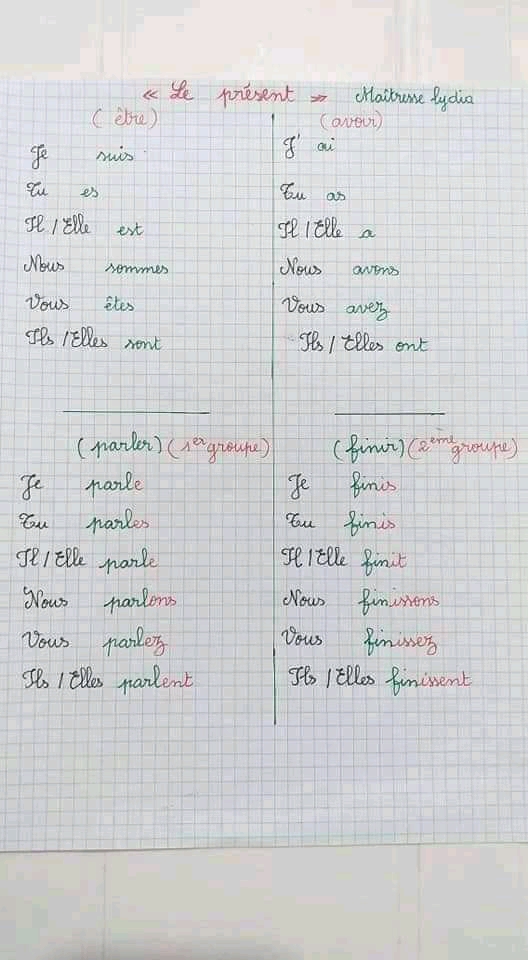 « Le présent » Maîtresse Lydia
(être)
Je suis
Tu es
Il / Elle est
Nous sommes
Vous êtes
Ils / Elles sont
(avoir)
J' ai
Tu as
Il / Elle a
Nous avons
Vous avez
Ils / Elles ont
(parler) (1er groupe)
Je parle
Tu parles
Il / Elle parle
Nous parlons
Vous parlez
Ils / Elles parlent
(finir) (2ème groupe)
Je finis
Tu finis
Il / Elle finit
Nous finissons
Vous finissez
Ils / Elles finissent